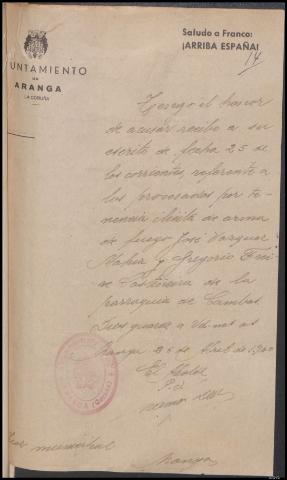 Saludo a Franco:
¡ARRIBA ESPAÑA!
14
UNTAMIENTO
DE
ARANGA
LA CORUÑA
Tengo el honor
de acusar recibo a su
escrito de fecha 25 de
los corrientes referente
a los procesados por te-
nencia ilícita de arma
de fuego José Vazquez
Mahia y Gregorio Frei-
re de la
parroquia de Cambas
Dios guarde a Vd.
Aranga 26 de Abril de 19
El Alcalde
P.O.
municipal
Aranga